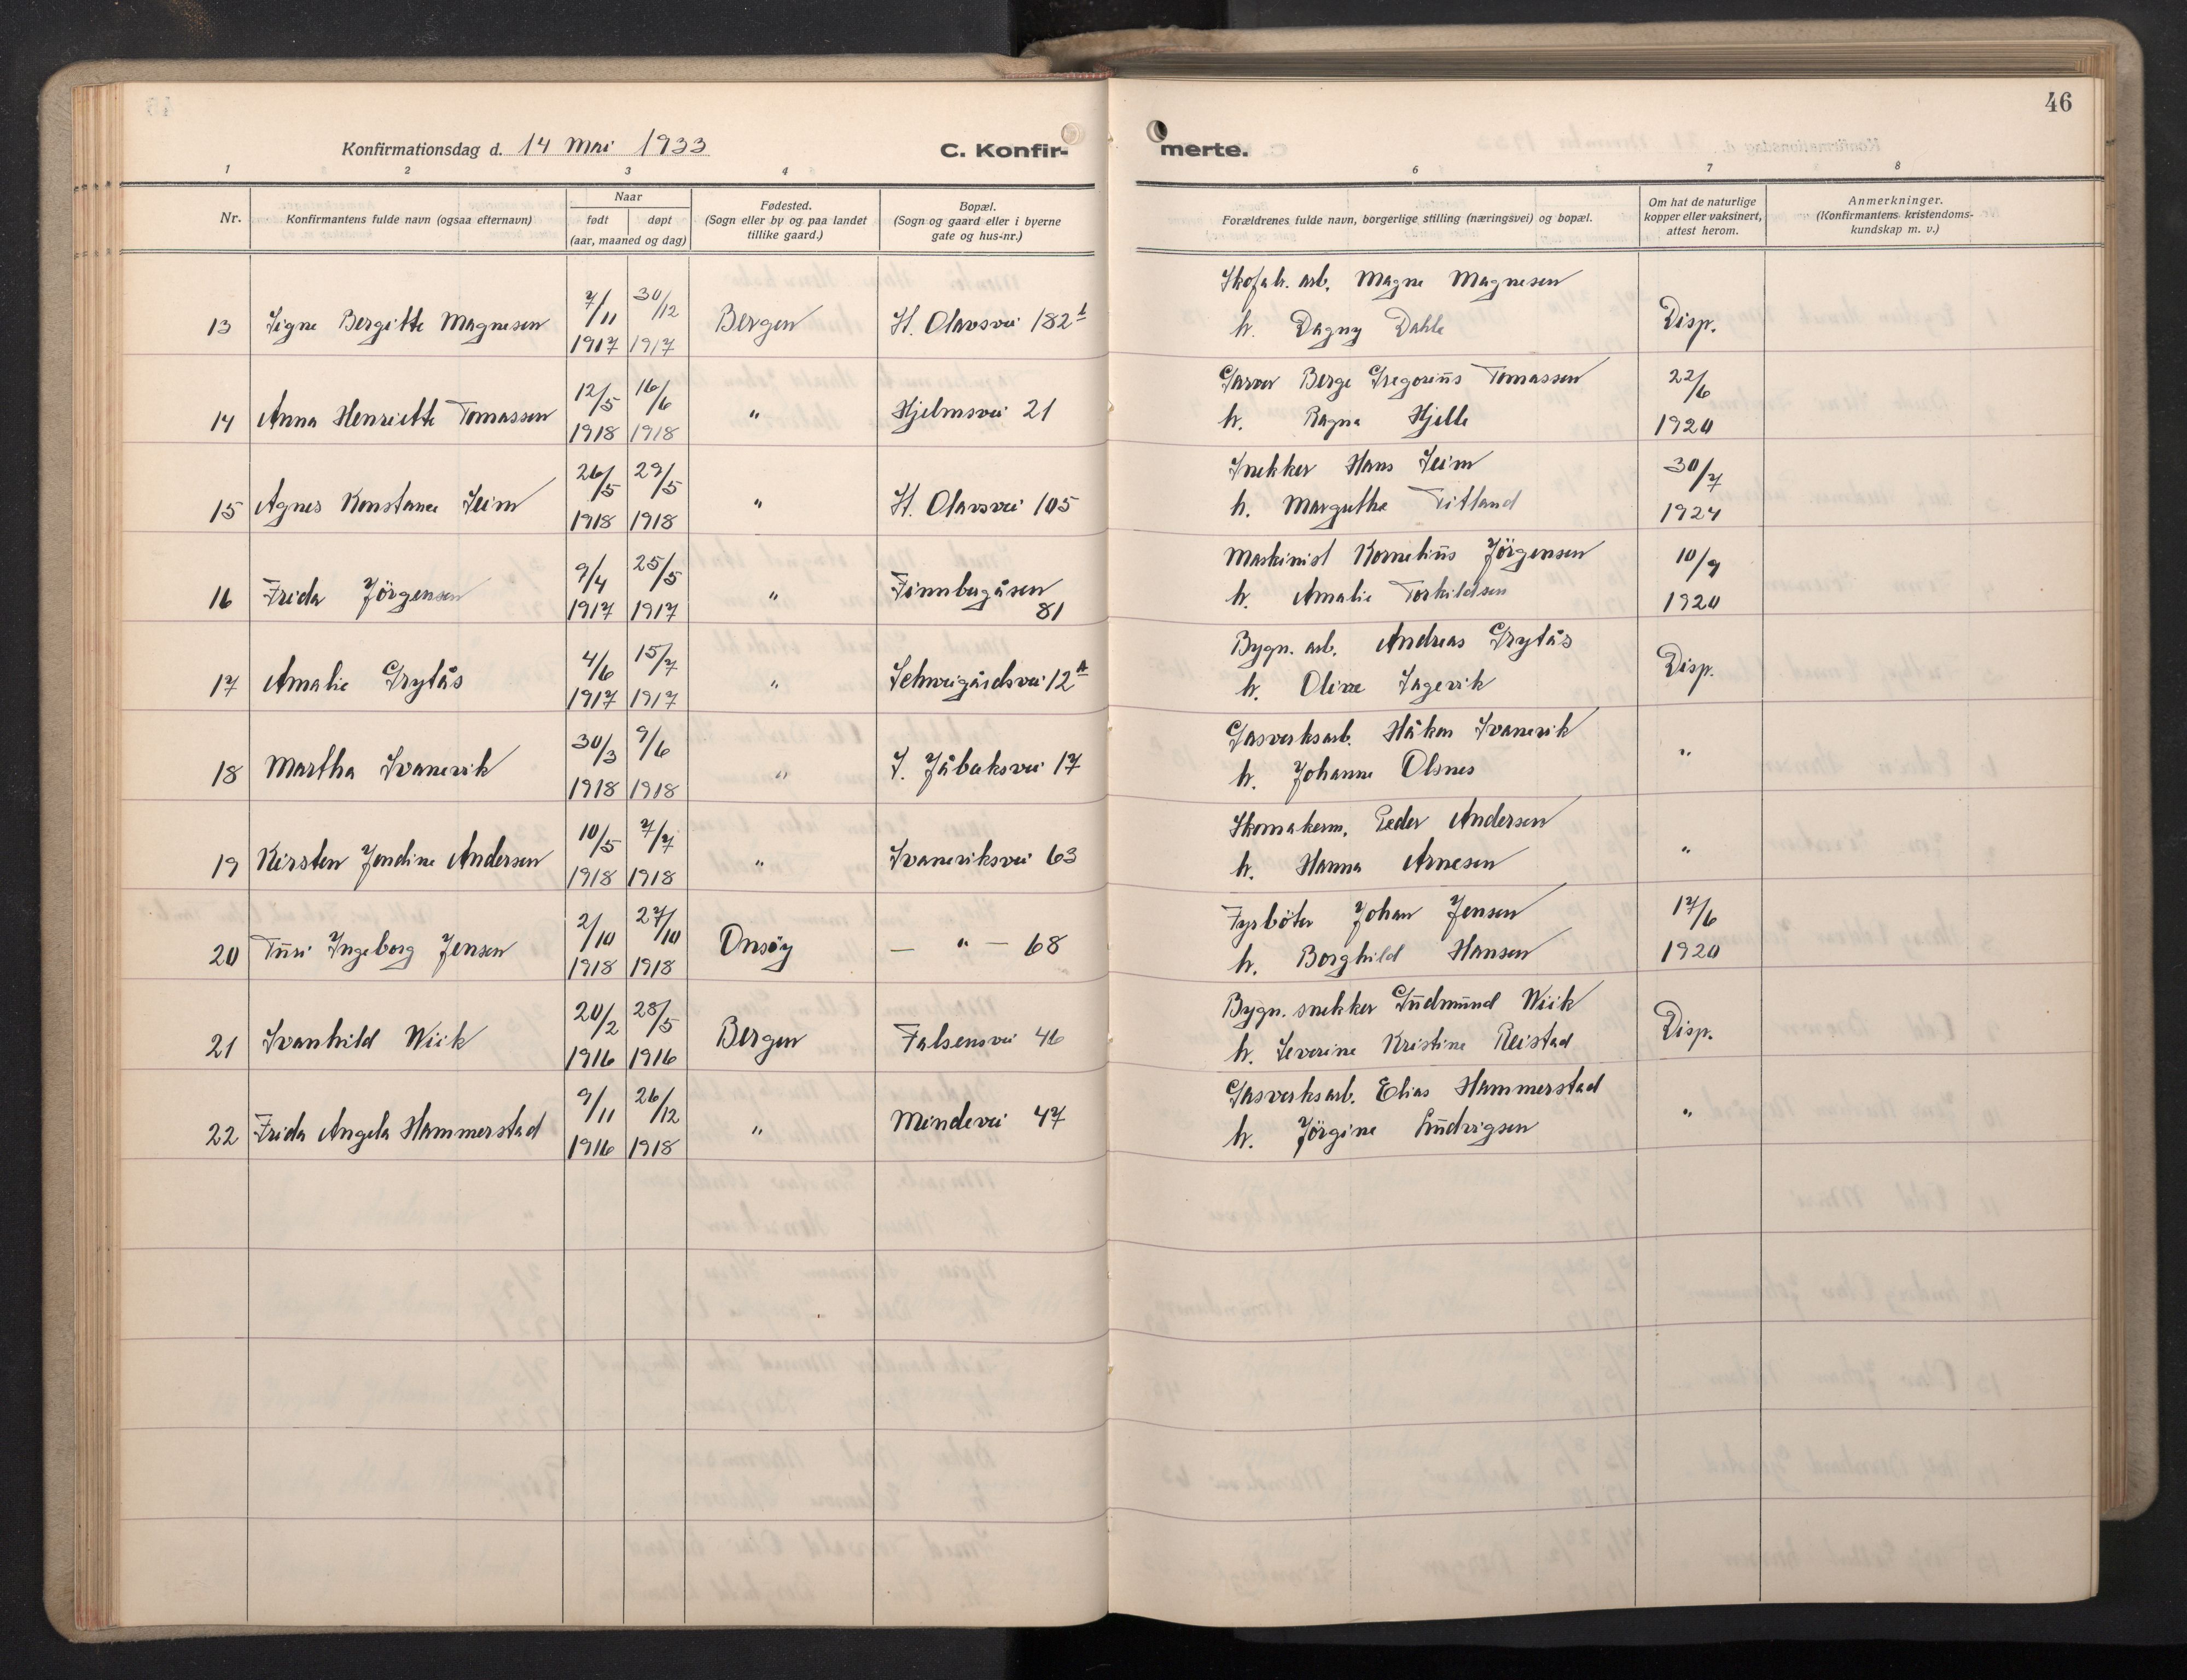 46
Konfirmationsdag d. 14 Mai 1933
C. Konfir-
merte.
1 2 3 4 6 7 8
Nr.
Konfirmantens fulde navn (ogsaa efternavn)
Naar
født døpt
(aar, maaned og dag)
Fødested.
(Sogn eller by og paa landet
tillike gaard.)
Bopæl.
(Sogn og gaard eller i byerne
gate og hus-nr.)
Forældrenes fulde navn, borgerlige stilling (næringsvei) og bopæl.
Om hat de naturlige
kopper eller vaksinert,
attest herom.
Anmerkninger.
(Konfirmantens kristendoms-
kundskap m. v.)
Skofab. arb. Magne Magnesen
13 Signe Bergitte Magnesen 7/11 30/12 Bergen St. Olavsvei 182 Disp.
1917 1917 h. Dagny Dahle
Garver Berge Gregorius Tomassen 22/6
14 Anna Henriette Tomassen 12/5 16/6 " Hjelmsvei 21
1918 1918 h. Ragna Hjelle 1920
Snekker Hans Seim 30/7
15 Agnes Konstance Seim 26/5 29/5 " St. Olavsvei 105
1918 1918 h. Margrethe Titland 1924
Maskinist Kornelius Jörgensen 10/9
16 Frida Jörgensen 9/4 25/5 " Finnbergåsen
1917 1917 81 h. Amalie Torkildsen 1920
Bygn. arb. Andreas Grytås
17 Amalie Grytås 4/6 15/7 " Schweigårdsvei 12 A Disp.
1917 1917 h. Oline Sagevik
Gasverksarb. Håkon Svanevik
18 Martha Svanevik 30/3 9/6 " J. Jåbæksvei 17 "
1918 1918 h. Johanne Olsnes
Skomakerm. Peder Andersen
19 Kirsten Jendine Andersen 10/5 7/7 " Svaneviksvei 63 "
1918 1918 h. Hanna Arnesen
Fyrböter Johan Jensen 17/6
20 Turi Ingeborg Jensen 2/10 27/10 Onsøy — " — 68
1918 1918 h. Borghild Hansen 1920
Bygn. snekker Gudmund Wiik
21 Svanhild Wiik 20/2 28/5 Bergen Falsensvei 46 Disp.
1916 1916 h. Severine Kristine Reistad
Gasverksarb. Elias Hammerstad
22 Frida Angela Hammerstad 9/11 26/12 " Mindevei 47 "
1916 1918 h. Jörgine Ludvigsen